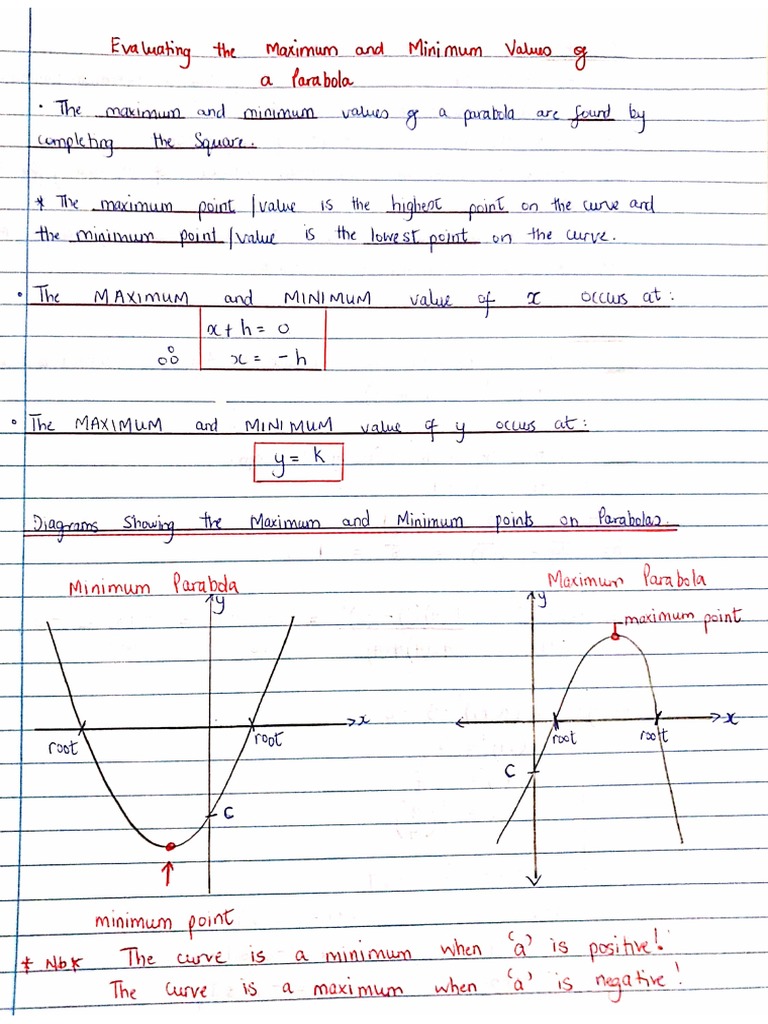 Evaluating the Maximum and Minimum Values of
a Parabola
• The maximum and minimum values of a parabola are found by
completing the Square.
* The maximum point/value is the highest point on the curve and
the minimum point/value is the lowest point on the curve.
• The MAXIMUM and MINIMUM value of x occurs at:
x + h = 0
∴ x = - h
• The MAXIMUM and MINIMUM value of y occurs at:
y = k
Diagrams Showing the Maximum and Minimum points on Parabolas.
Minimum Parabola
Maximum Parabola
y
y
maximum point
x
x
root
root
root
root
C
C
minimum point
* Nb* The curve is a minimum when 'a' is positive!
The curve is a maximum when 'a' is negative!